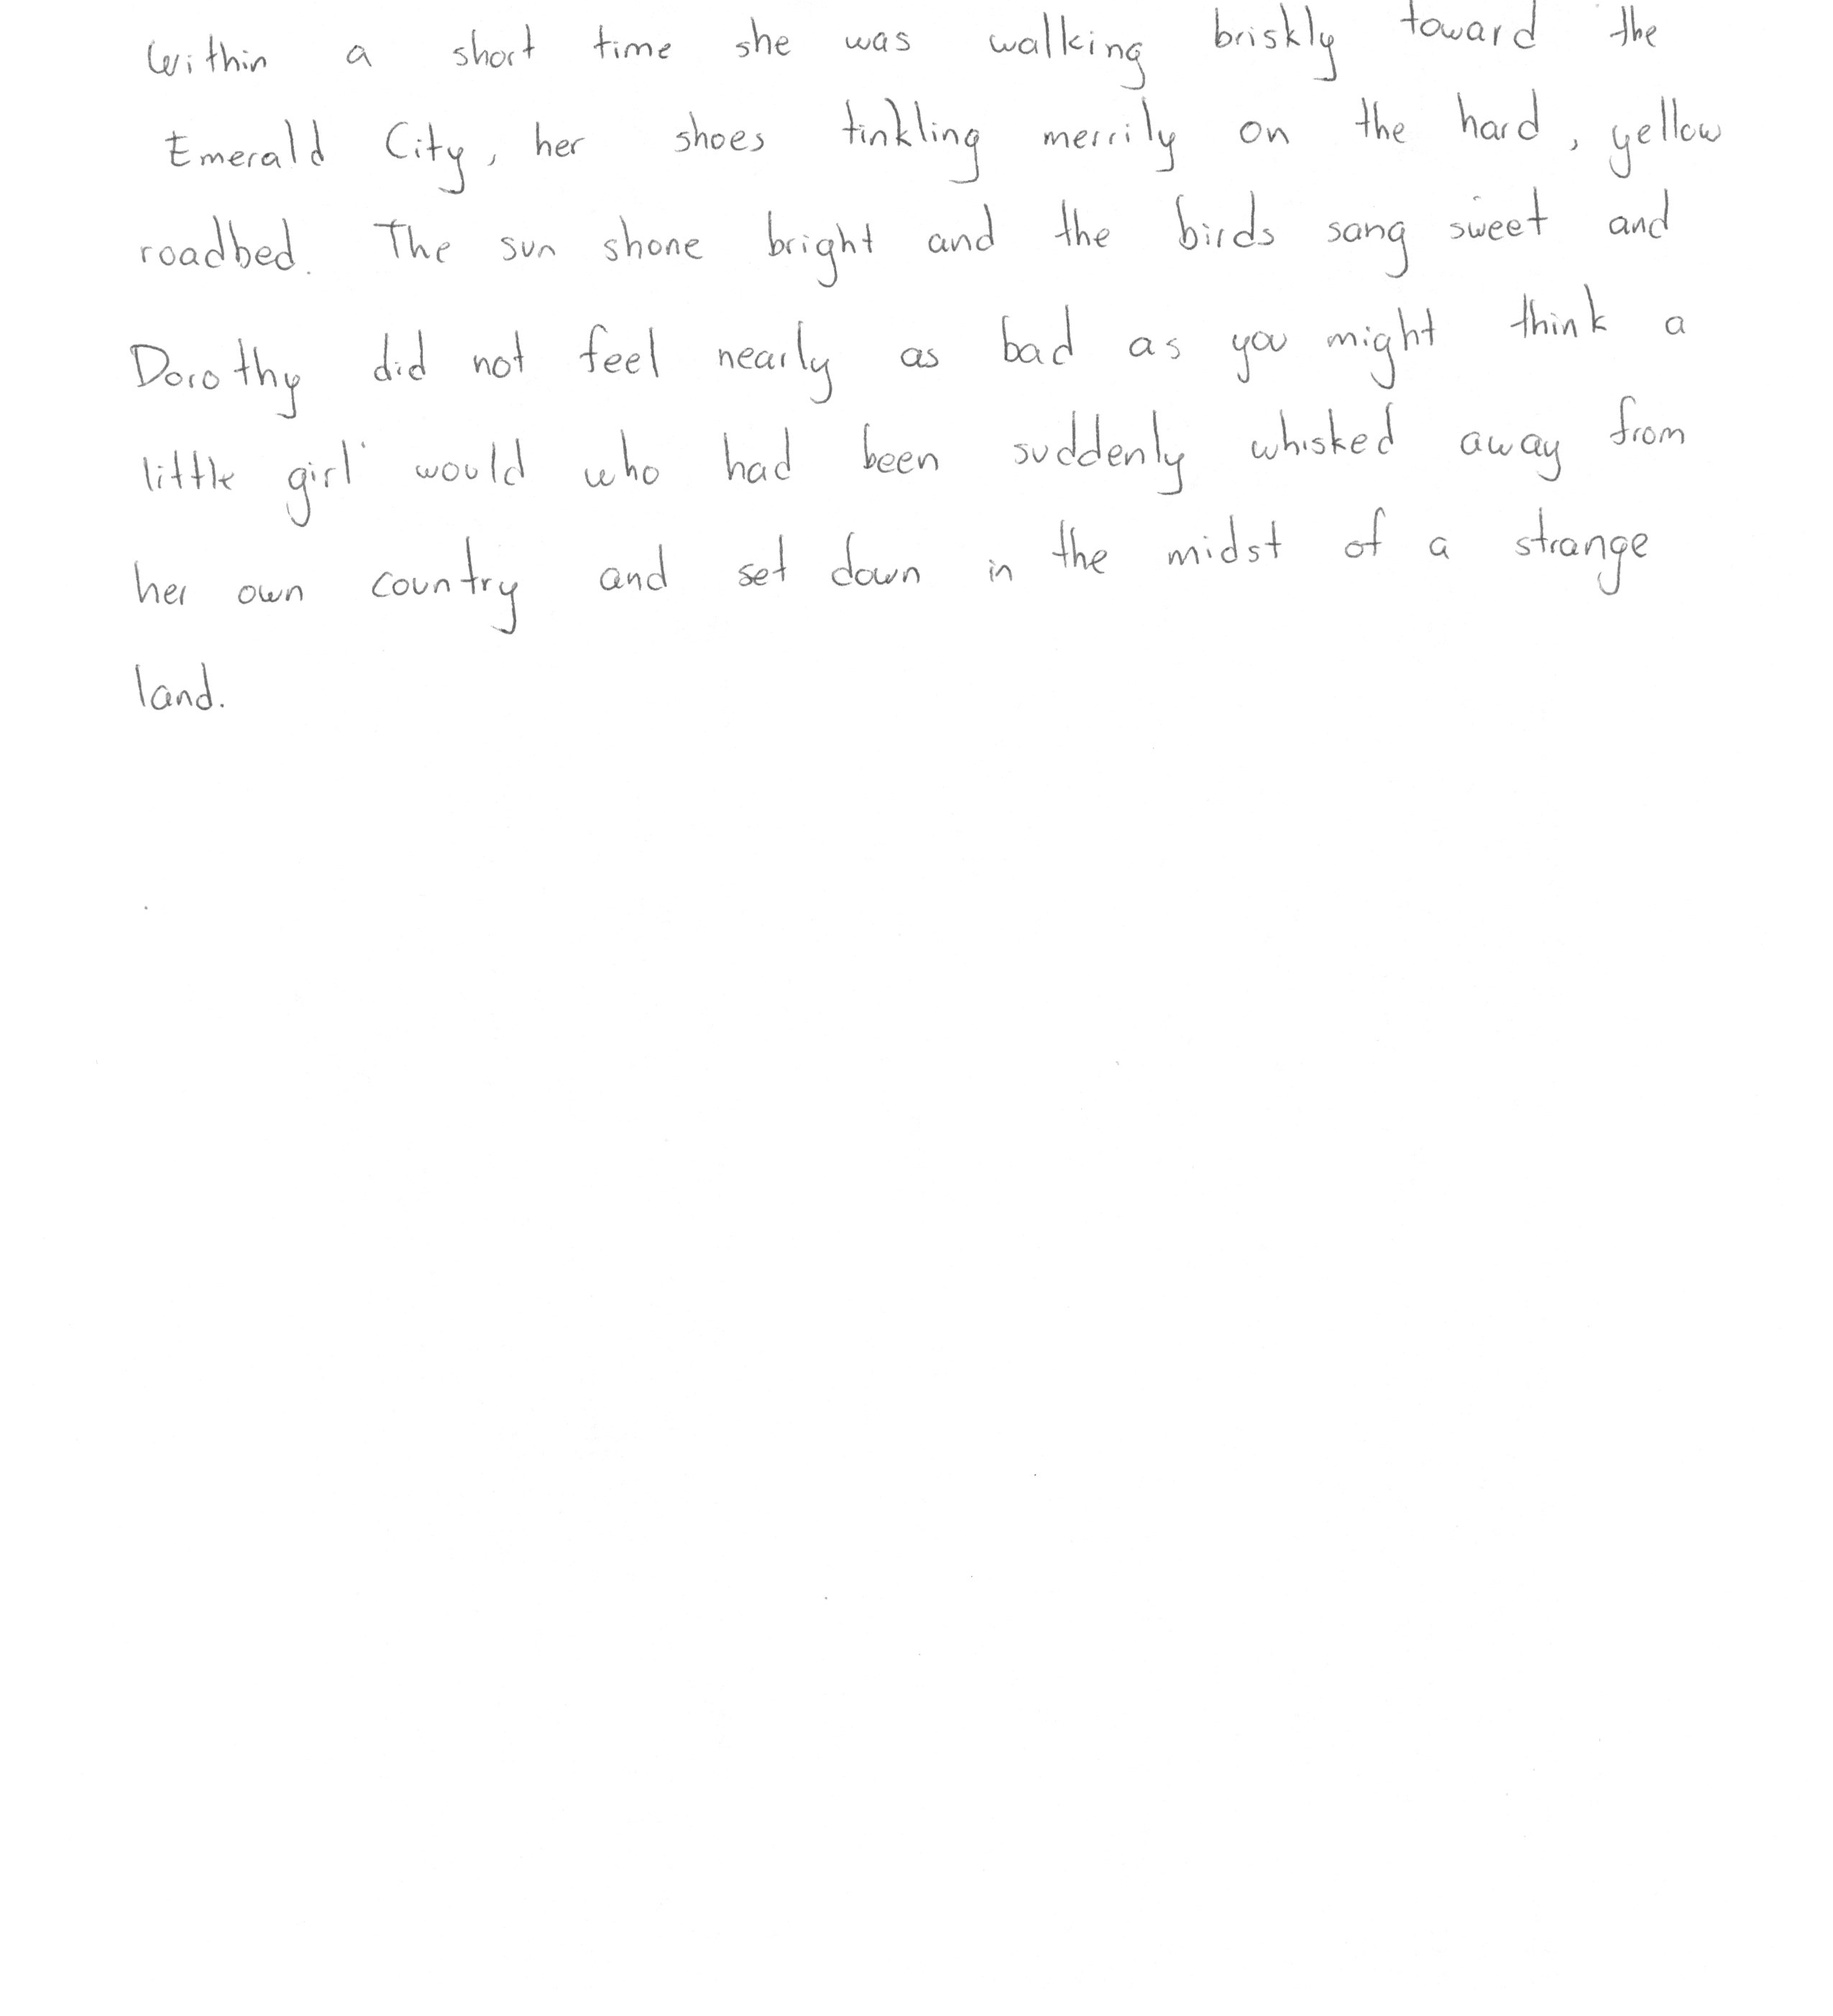 Within a short time she was walking briskly toward the
Emerald City, her shoes tinkling merrily on the hard, yellow
roadbed. The sun shone bright and the birds sang sweet and
Dorothy did not feel nearly as bad as you might think a
little girl would who had been suddenly whisked away from
her own country and set down in the midst of a strange
land.